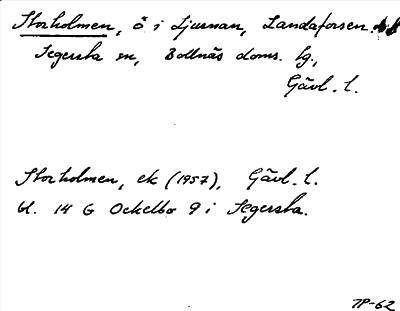 Storholmen, ö i Ljusnan, Landaforsen.
Segersta sn, Bollnäs doms. tg.,
Gävl. l.
Storholmen, ek (1957), Gävl. l.
bl. 14 G Ockelbo 9 i Segersta.
TP-62